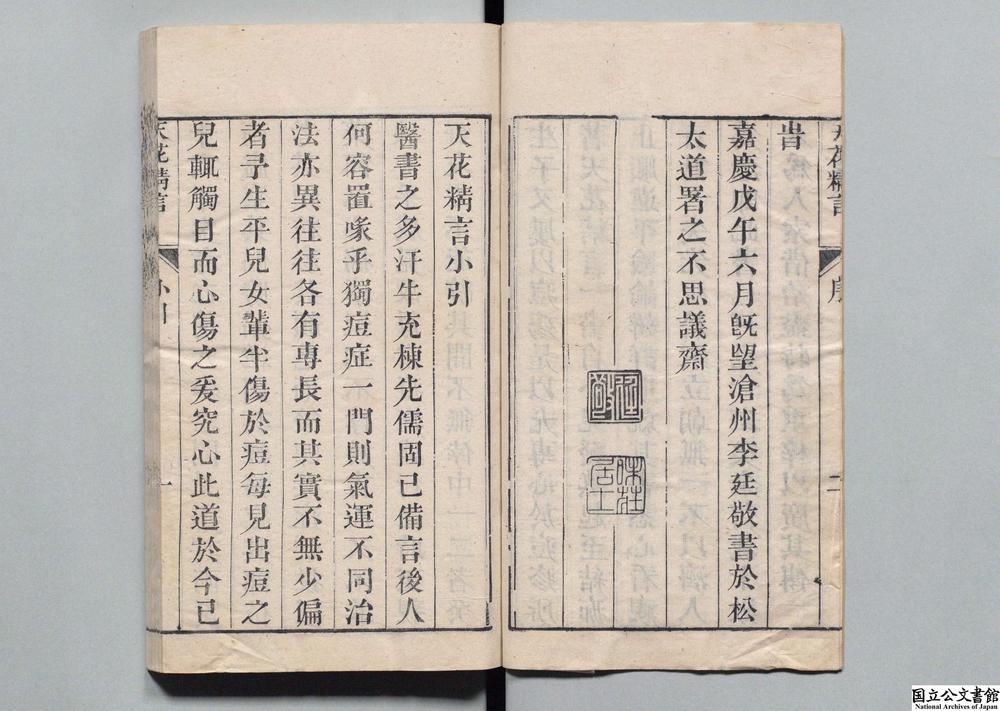 天花精言 序 二
旹
嘉慶戊午六月旣望滄州李廷敬書於松
太道署之不思議齋
廷敬
味莊居士
天花精言小引
醫書之多汗牛充棟先儒固已備言後人
何容置喙乎獨痘症一門則氣運不同治
法亦異往往各有專長而其實不無少偏
者予生平兒女輩半傷於痘每見出痘之
兒輒觸目而心傷之爰究心此道於今已
天花精言 小引 一
国立公文書館
National Archives of Japan